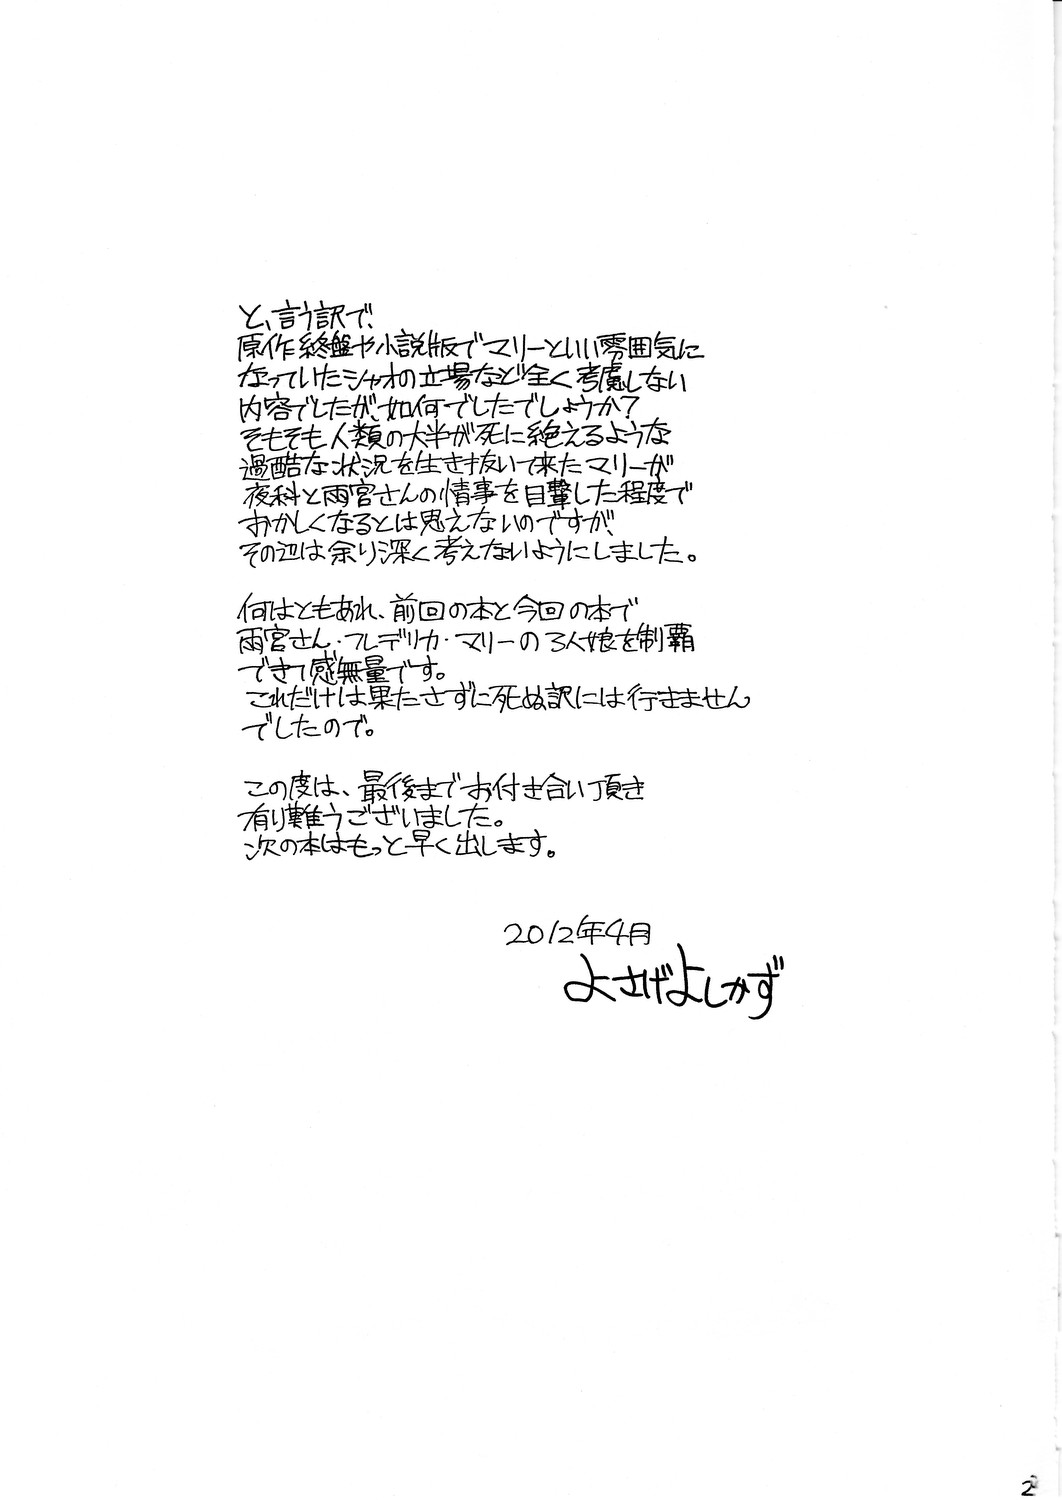 と、言う訳で、
原作終盤や小説版でマリーといい雰囲気に
なっていたシャオの立場など全く考慮しない
内容でしたが、如何でしたでしょうか？
そもそも人類の大半が死に絶えるような
過酷な状況を生き抜いて来たマリーが
夜科と雨宮さんの情事を目撃した程度で
おかしくなるとは思えないのですが、
その辺は余り深く考えないようにしました。
何はともあれ、前回の本と今回の本で
雨宮さん・フレデリカ・マリーの3人娘を制覇
できて感無量です。
これだけは果たさずに死ぬ訳には行きません
でしたので。
この度は、最後までお付き合い頂き
有り難うございました。
次の本はもっと早く出します。
2012年4月
よさげよしかず
2